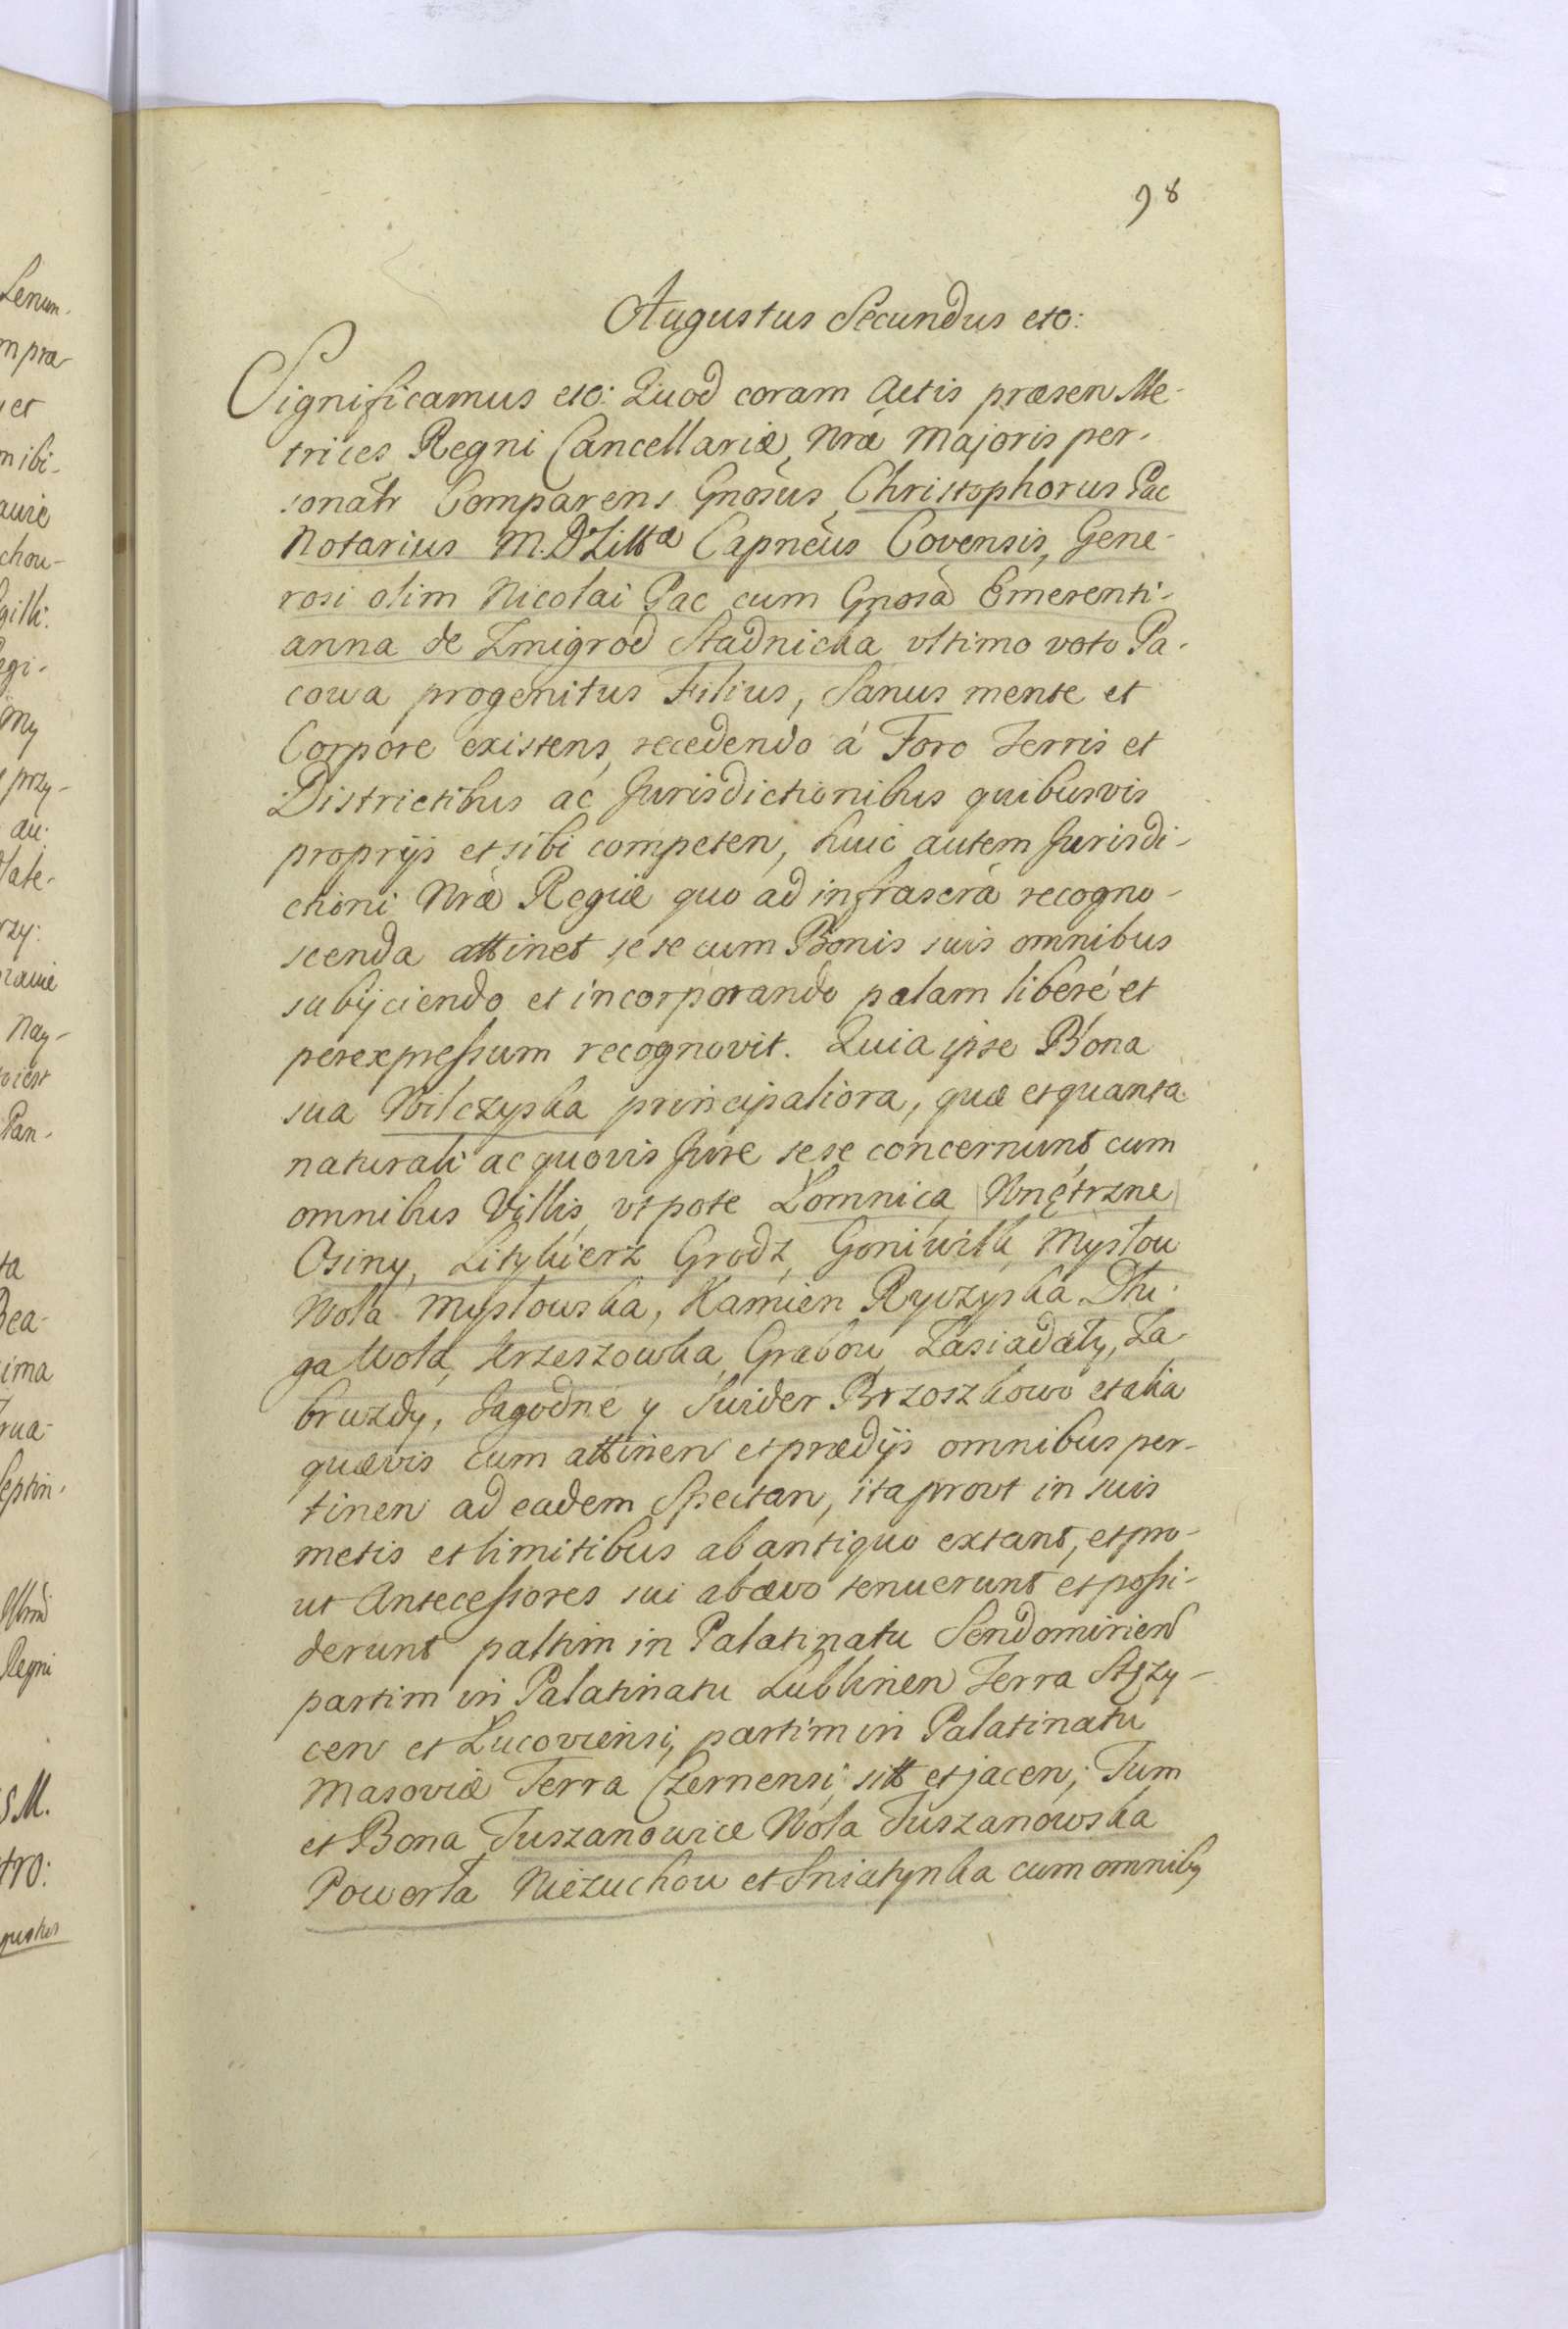 98
Augustus Secundus etc:
Significamus etc: Quod coram Actis præsen Me-
trices Regni Cancellariæ Nræ Majoris per-
sonalr Comparens Gnosus Christophorus Pac
Notarius M.D Littæ Capneus Covensis, Gene-
rosi olim Nicolai Pac cum Gnosa Emerenti-
anna de Zmigrod Stadnicka ultimo voto Pa-
cowa progenitus Filius, Sanus mente et
Corpore existens, recedendo á Foro Terris et
Districtibus ac Jurisdictionibus quibusvis
proprijs et sibi competen, huic autem Jurisdi-
ctioni Nræ Regiæ quo ad infrascra recogno-
scenda attinet sese cum Bonis suis omnibus
subijciendo et incorporando palam liberé et
perexpressum recognovit. Quia ipse Bona
sua Wilczyska principaliora, quæ et quanta
naturali ac quovis Jure sese concernunt cum
omnibus Villis, utpote Łomnica Wnętrzne
Osiny, Lityhierz Grodz, Goniwilk Mysłow
Wola Mysłowska, Kamien Ryczyska Dłu-
ga Wola, Krzeszowka Grabow Zasiadały, Za-
bruzdy, Jagodne y Swider Brzoszkowo et alia
quævis cum attinen et prædijs omnibus per-
tinen ad eadem Spectan, ita prout in suis
metis et limitibus ab antiquo extant, et pro-
ut Antecessores sui ab ævo tenuerunt et possi-
derunt palhim in Palatinatu Sendomirien
partim in Palatinatu Lublinen Terra Stęzy-
cen et Łucoviensi, partim in Palatinatu
Masoviæ Terra Czernensi sitt et jacen; Tum
et Bona Tuszanowice Wola Tuszanowska
Powerła Niezuchow et Sniatynka cum omnibꝫ